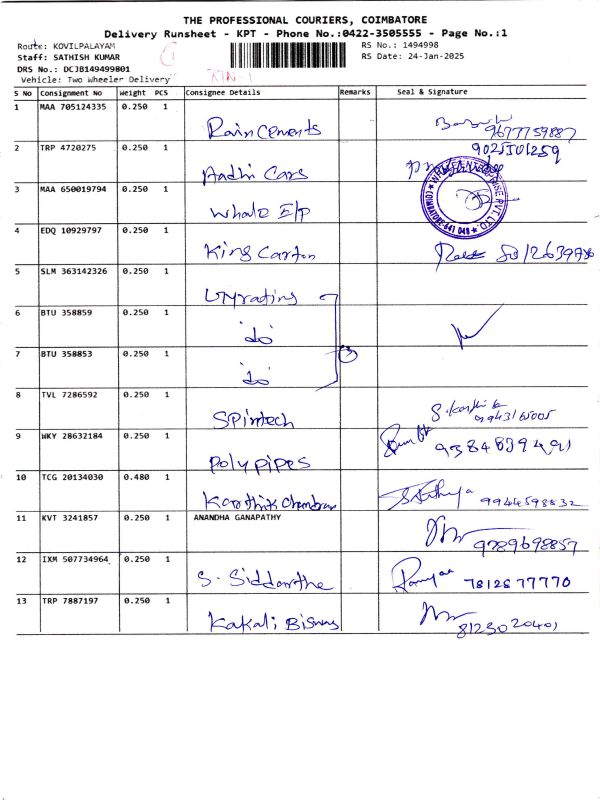 THE PROFESSIONAL COURIERS, COIMBATORE
Delivery Runsheet - KPT - Phone No.:0422-3505555 - Page No.:1
Route: KOVILPALAYAM RS No.: 1494998
Staff: SATHISH KUMAR RS Date: 24-Jan-2025
DRS No.: DCJB149499801
Vehicle: Two Wheeler Delivery
S No Consignment No Weight PCS Consignee Details Remarks Seal & Signature
1 MAA 705124335 0.250 1
Rain Cements 9677759887
2 TRP 4720275 0.250 1 9025101259
Aadhi Cars
3 MAA 650019794 0.250 1
Whale E/P
4 EDQ 10929797 0.250 1
King Carton
5 SLM 363142326 0.250 1
6 BTU 358859 0.250 1
do
7 BTU 358853 0.250 1 3
do
8 TVL 7286592 0.250 1
Spintech
9 WKY 28632184 0.250 1 9384839491
Polypipes
10 TCG 20134030 0.480 1
Karthik Chandran 9944598832
11 KVT 3241857 0.250 1 ANANDHA GANAPATHY
9789698857
12 IXM 507734964 0.250 1
S. Siddarthe 7812877770
13 TRP 7887197 0.250 1
Kakali Biswas 8123020401